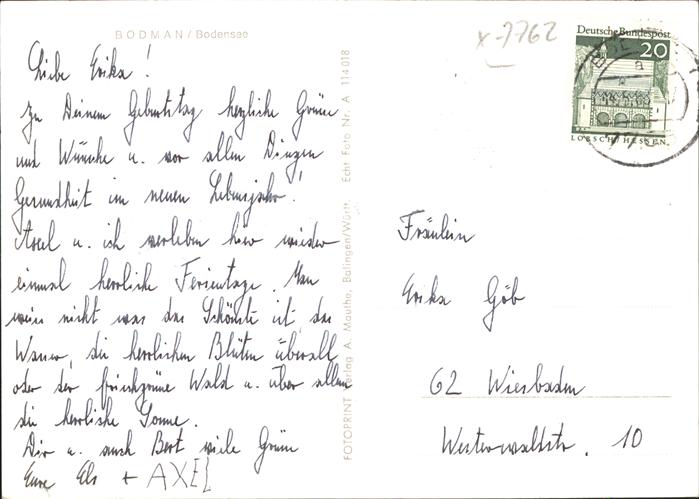 BODMAN / Bodensee
x-7762
Deutsche Bundespost
20
LORSCH/HESSEN
Liebe Erika!
Zu Deinem Geburtstag herzliche Grüße
und Wünsche u. vor allen Dingen
Gesundheit im neuen Lebensjahr!
Axel u. ich verleben hier wieder
einmal herrliche Ferientage. Man
weiss nicht was das Schönste ist, das
Wasser, die herrlichen Blüten überall
oder der frischgrüne Wald u. über allem
die herrliche Sonne.
Dir u. auch Bert viele Grüße
Eure Els + AXEL
FOTOPRINT Verlag A. Mauthe, Balingen/Württ. Echt Foto Nr. A 114018
Fräulein
Erika Göb
62 Wiesbaden
Westerwaldstr. 10